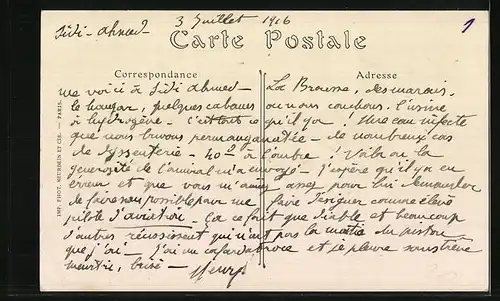 Sidi-Ahmed 3 Juillet 1916
1
Carte Postale
Correspondance Adresse
me voici à Sidi Ahmed — La Brousse, des marais.
le hangar, quelques cabanes où nous couchons. l'usine
à hydrogène — c'est tout ce qu'il y a ! Une eau infecte
que nous buvons permanganatée — de nombreux cas
de dyssenterie — 40° à l'ombre ! Voilà où la
générosité de l'amiral m'a envoyé — j'espère qu'il y a eu
erreur et que vous m'aimez assez pour lui demander
de faire son possible pour me faire désigner comme élève
pilote d'aviation — Ça ce fait que diable et beaucoup
d'autres réussissent qui n'ont pas la moitié du piston
que j'ai — J'ai un cafard atroce et je pleure sans trêve
meurtri, brisé — Henry
IMP. PHOT. NEURDEIN ET CIE. — PARIS.